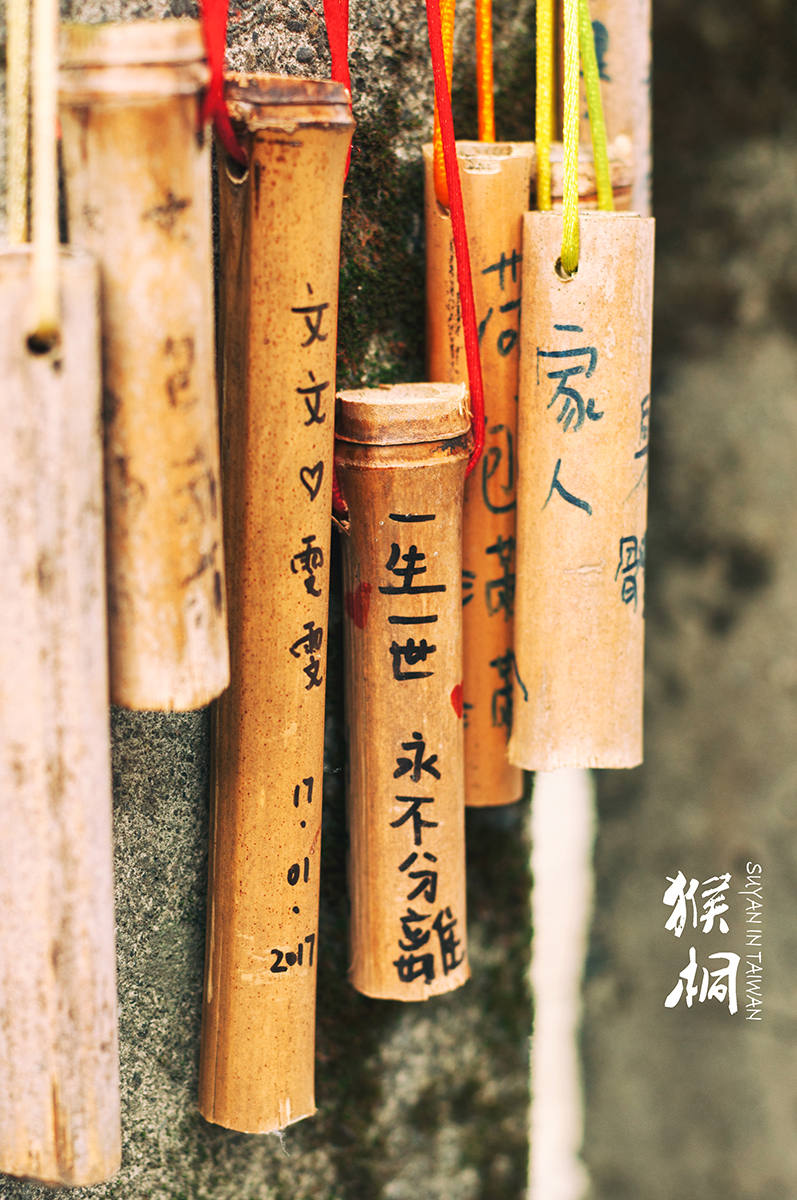 文文♡雯雯
17.01.2017
一生一世 永不分離
荷包滿滿
家人
猴桐
SUYAN IN TAIWAN